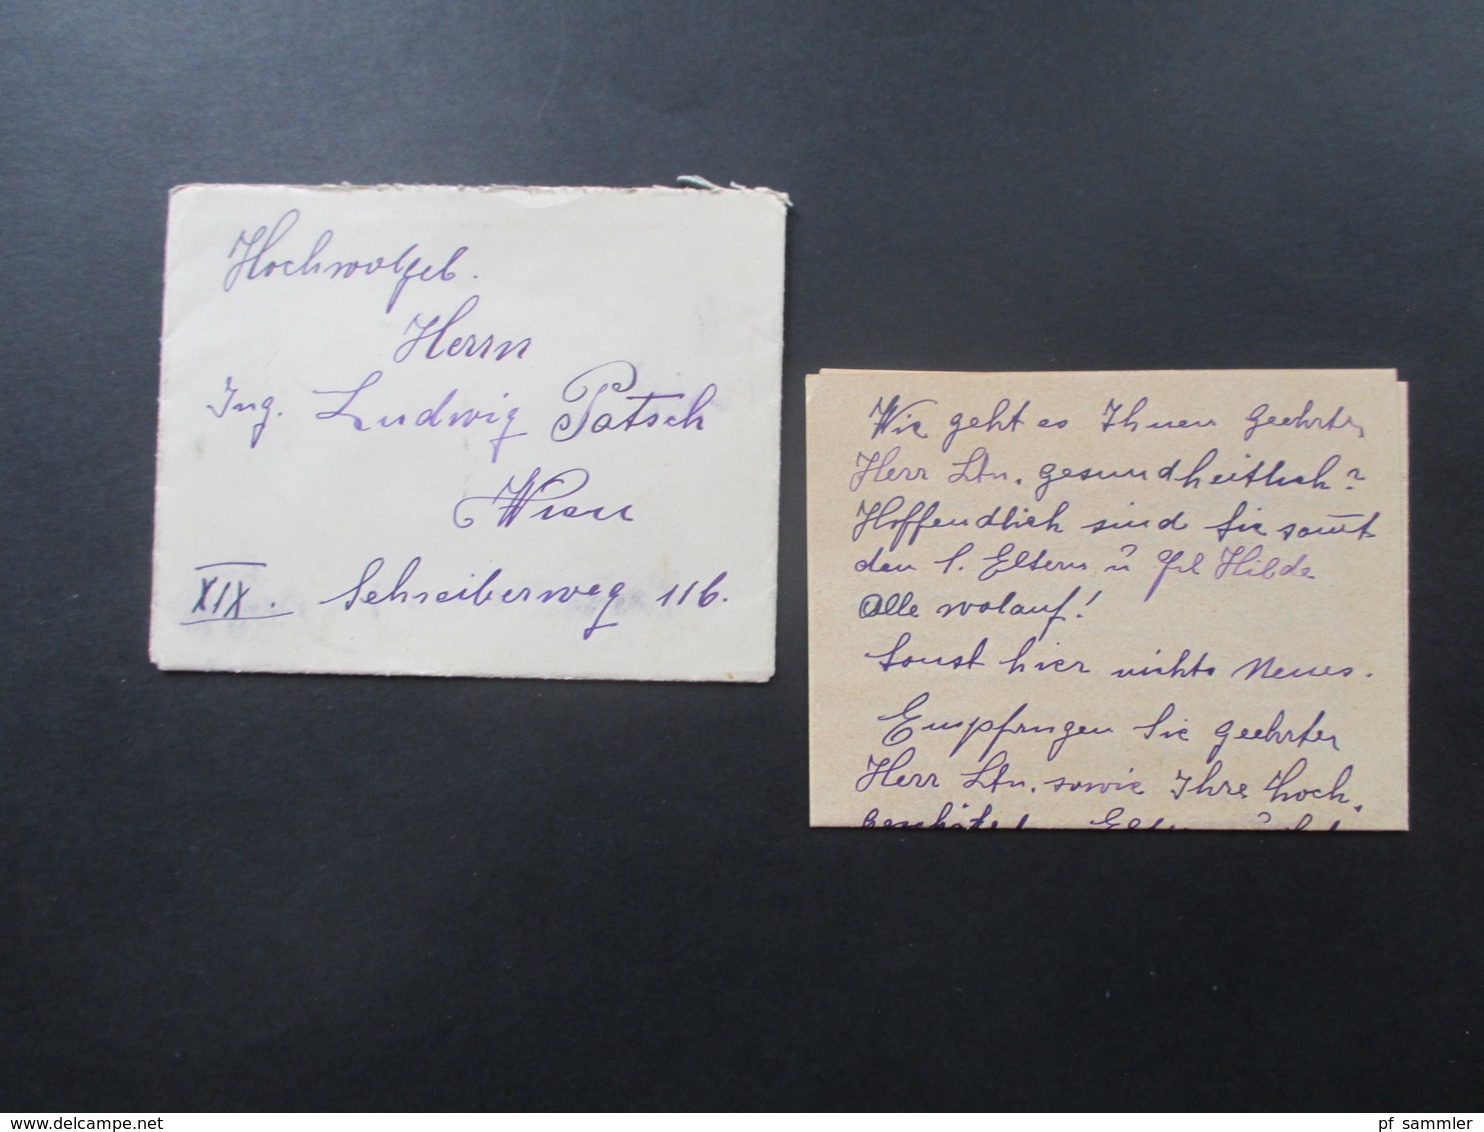 Hochwolgeb.
Herrn
Ing. Ludwig Patsch
Wien
XIX. Schreiberweg 116.
Wie geht es Ihnen geehrter
Herr Ltn. gesundheitlich?
Hoffendlich sind Sie samt
den l. Eltern u Frl Hilde
alle wolauf!
Sonst hier nichts Neues.
Empfangen Sie geehrter
Herr Ltn. sowie Ihre hoch.
© www.delcampe.net
pf_sammler